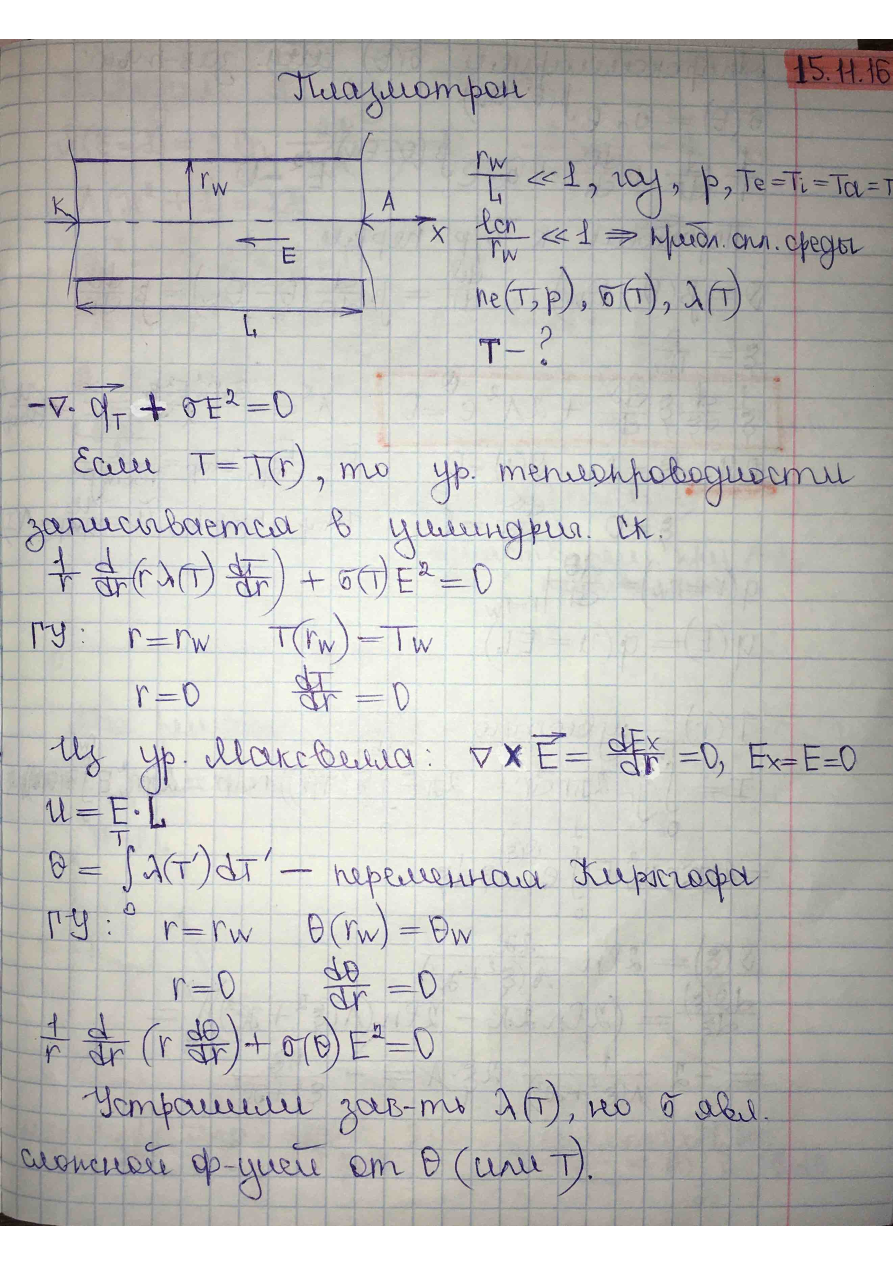 15.11.16
Плазмотрон
r_W
K
A
x
E
L
r_W/L ≪ 1, газ, p, Te = Ti = Ta = T
lсп/r_W ≪ 1 ⇒ прибл. спл. среды
ne(T, p), σ(T), λ(T)
T – ?
-∇·q⃗_T + σE² = 0
Если T = T(r), то ур. теплопроводности
записывается в цилиндрич. СК.
1/r d/dr (rλ(T) dT/dr) + σ(T)E² = 0
ГУ: r = r_W T(r_W) = T_W
r = 0 dT/dr = 0
Из ур. Максвелла: ∇ × E⃗ = dEx/dr = 0, Ex = E = 0
U = E · L
θ = ∫₀ᵀ λ(T')dT' – переменная Кирхгофа
ГУ: r = r_W θ(r_W) = θ_W
r = 0 dθ/dr = 0
1/r d/dr (r dθ/dr) + σ(θ)E² = 0
Устранили зав-ть λ(T), но σ явл.
сложной ф-цией от θ (или T).